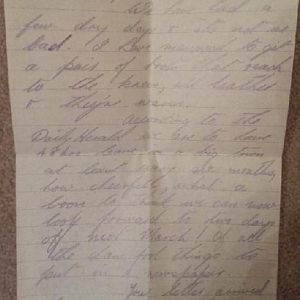 We have had a
few dry days & it's not so
bad. I have managed to get
a pair of boots that reach
to the knee, in leather
& they're warm.
According to the
Daily Herald we are to have
48 hrs leave in a big town
at least every six months,
how cheerful, what a
boon to think we can now
look forward to two days
off next March! Of all
the damn fool things to
put in a newspaper.
Your letter arrived